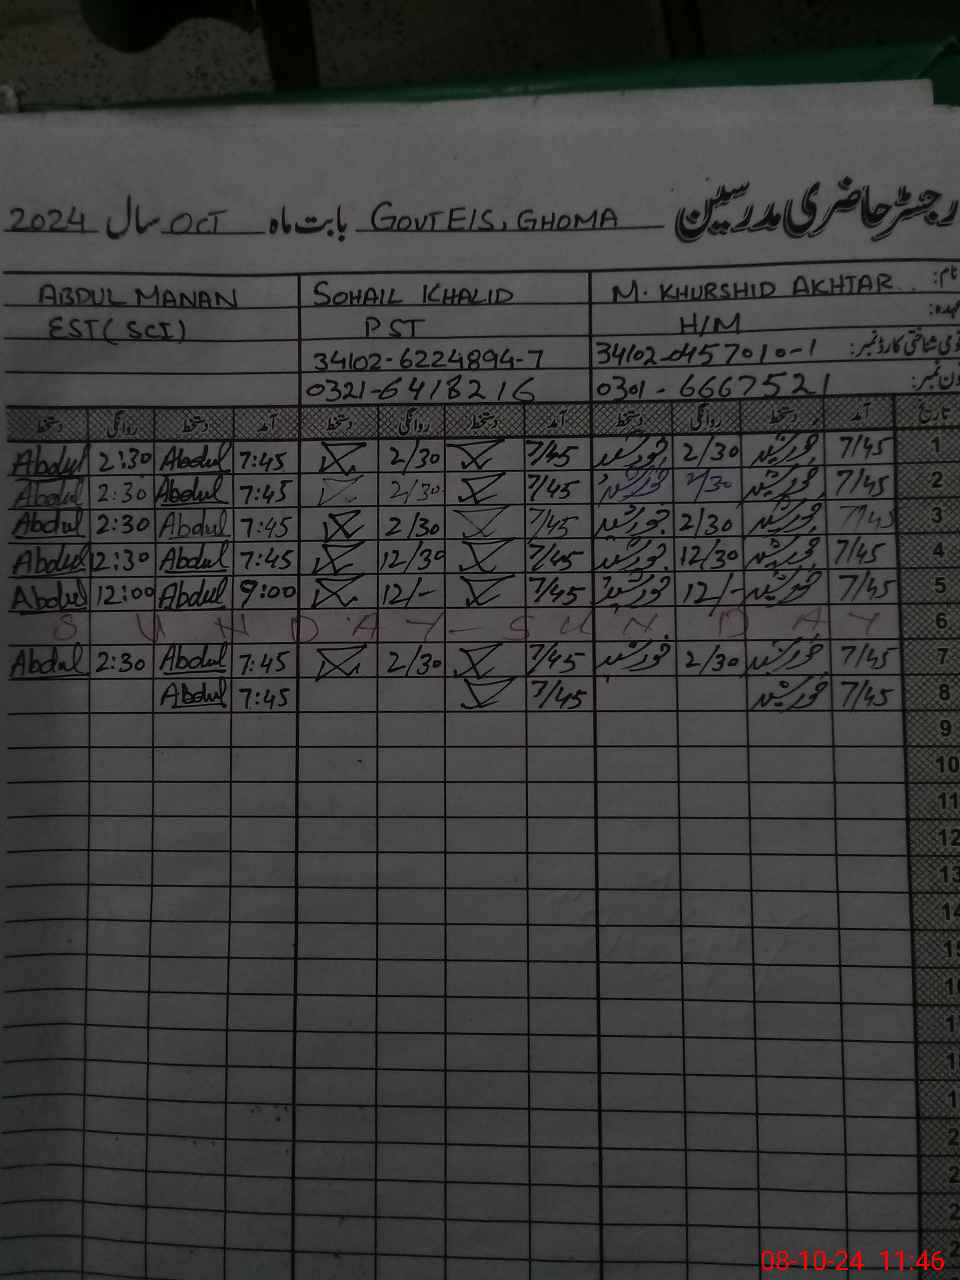 رجسٹر حاضری مدرسین GOVT E/S, GHOMA بابت ماہ OCT سال 2024
نام: M. KHURSHID AKHTAR SOHAIL KHALID ABDUL MANAN
عہدہ: H/M PST EST (SCI)
قومی شناختی کارڈ نمبر: 34102-0457010-1 34102-6224894-7
فون نمبر: 0301-6667521 0321-6418216
تاریخ آمد دستخط روانگی دستخط آمد دستخط روانگی دستخط آمد دستخط روانگی دستخط
1 7/45 خورشید 2/30 خورشید 7/45 2/30 7:45 Abdul 2:30 Abdul
2 7/45 خورشید 2/30 خورشید 7/45 2/30 7:45 Abdul 2:30 Abdul
3 7/45 خورشید 2/30 خورشید 7/45 2/30 7:45 Abdul 2:30 Abdul
4 7/45 خورشید 12/30 خورشید 7/45 12/30 7:45 Abdul 12:30 Abdul
5 7/45 خورشید 12/- خورشید 7/45 12/- 9:00 Abdul 12:00 Abdul
6 SUNDAY-SUNDAY
7 7/45 خورشید 2/30 خورشید 7/45 2/30 7:45 Abdul 2:30 Abdul
8 7/45 خورشید 7/45 7:45 Abdul
9
10
11
12
13
14
08-10-24 11:46